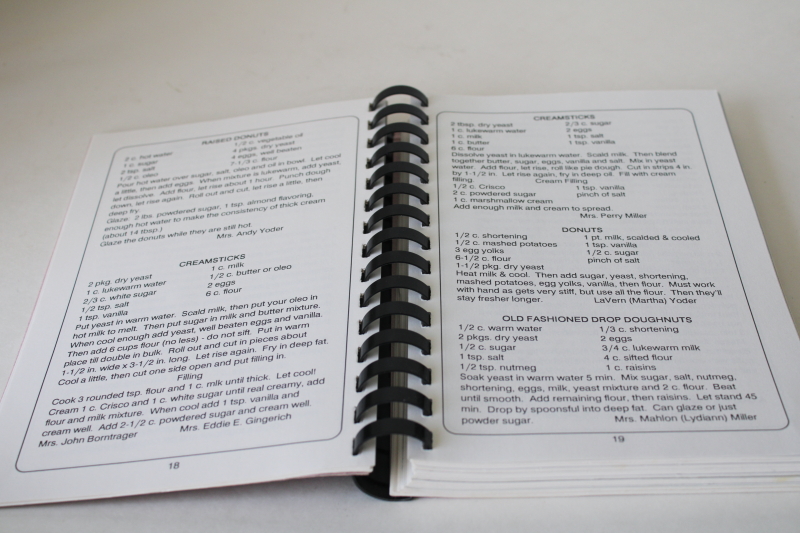 RAISED DONUTS
2 c. hot water 1/2 c. vegetable oil
1 c. sugar 4 pkgs. dry yeast
2 tsp. salt 4 eggs, well beaten
1/2 c. oleo 7-1/3 c. flour
Pour hot water over sugar, salt, oleo and oil in bowl. Let cool
a little, then add eggs. When mixture is lukewarm, add yeast,
let dissolve. Add flour, let rise about 1 hour. Punch dough
down, let rise again. Roll out and cut, let rise a little, then
deep fry.
Glaze: 2 lbs. powdered sugar, 1 tsp. almond flavoring,
enough hot water to make the consistency of thick cream
(about 14 tbsp.)
Glaze the donuts while they are still hot.
Mrs. Andy Yoder
CREAMSTICKS
2 pkg. dry yeast 1 c. milk
1 c. lukewarm water 1/2 c. butter or oleo
2/3 c. white sugar 2 eggs
1/2 tsp. salt 6 c. flour
1 tsp. vanilla
Put yeast in warm water. Scald milk, then put your oleo in
hot milk to melt. Then put sugar in milk and butter mixture.
When cool enough add yeast, well beaten eggs and vanilla.
Then add 6 cups flour (no less) - do not sift. Put in warm
place till double in bulk. Roll out and cut in pieces about
1-1/2 in. wide x 3-1/2 in. long. Let rise again. Fry in deep fat.
Cool a little, then cut one side open and put filling in.
Filling
Cook 3 rounded tsp. flour and 1 c. mlk until thick. Let cool!
Cream 1 c. Crisco and 1 c. white sugar until real creamy, add
flour and milk mixture. When cool add 1 tsp. vanilla and
cream well. Add 2-1/2 c. powdered sugar and cream well.
Mrs. John Borntrager Mrs. Eddie E. Gingerich
18
CREAMSTICKS
2 tbsp. dry yeast 2/3 c. sugar
1 c. lukewarm water 2 eggs
1 c. milk 1 tsp. salt
1 c. butter 1 tsp. vanilla
6 c. flour
Dissolve yeast in lukewarm water. Scald milk. Then blend
together butter, sugar, eggs, vanilla and salt. Mix in yeast
water. Add flour, let rise, roll like pie dough. Cut in strips 4 in.
by 1-1/2 in. Let rise again, fry in deep oil. Fill with cream
filling.
Cream Filling
1/2 c. Crisco 1 tsp. vanilla
2 c. powdered sugar pinch of salt
1 c. marshmallow cream
Add enough milk and cream to spread.
Mrs. Perry Miller
DONUTS
1/2 c. shortening 1 pt. milk, scalded & cooled
1/2 c. mashed potatoes 1 tsp. vanilla
3 egg yolks 1/2 c. sugar
6-1/2 c. flour pinch of salt
1-1/2 pkg. dry yeast
Heat milk & cool. Then add sugar, yeast, shortening,
mashed potatoes, egg yolks, vanilla, then flour. Must work
with hand as gets very stiff, but use all the flour. Then they'll
stay fresher longer. LaVern (Martha) Yoder
OLD FASHIONED DROP DOUGHNUTS
1/2 c. warm water 1/3 c. shortening
2 pkgs. dry yeast 2 eggs
1/2 c. sugar 3/4 c. lukewarm milk
1 tsp. salt 4 c. sifted flour
1/2 tsp. nutmeg 1 c. raisins
Soak yeast in warm water 5 min. Mix sugar, salt, nutmeg,
shortening, eggs, milk, yeast mixture and 2 c. flour. Beat
until smooth. Add remaining flour, then raisins. Let stand 45
min. Drop by spoonsful into deep fat. Can glaze or just
powder sugar. Mrs. Mahlon (Lydiann) Miller
19